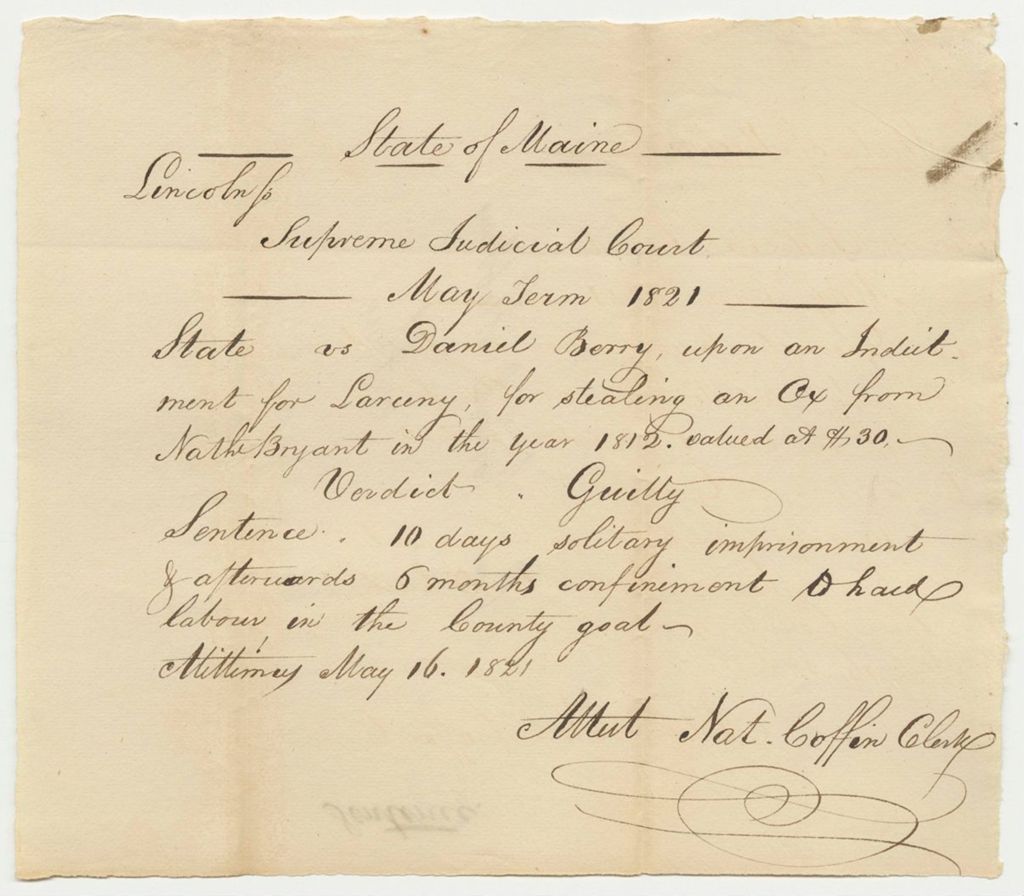 State of Maine
Lincoln ss
Supreme Judicial Court
May Term 1821
State vs Daniel Berry, upon an Indict-
ment for Larceny, for stealing an Ox from
Nathl Bryant in the year 1812. valued at $30.
Verdict . Guilty
Sentence . 10 days solitary imprisonment
& afterwards 6 months confiniment & hard
labour in the County goal
Mittimus May 16. 1821
Attest Nat. Coffin Clerk
Sentence